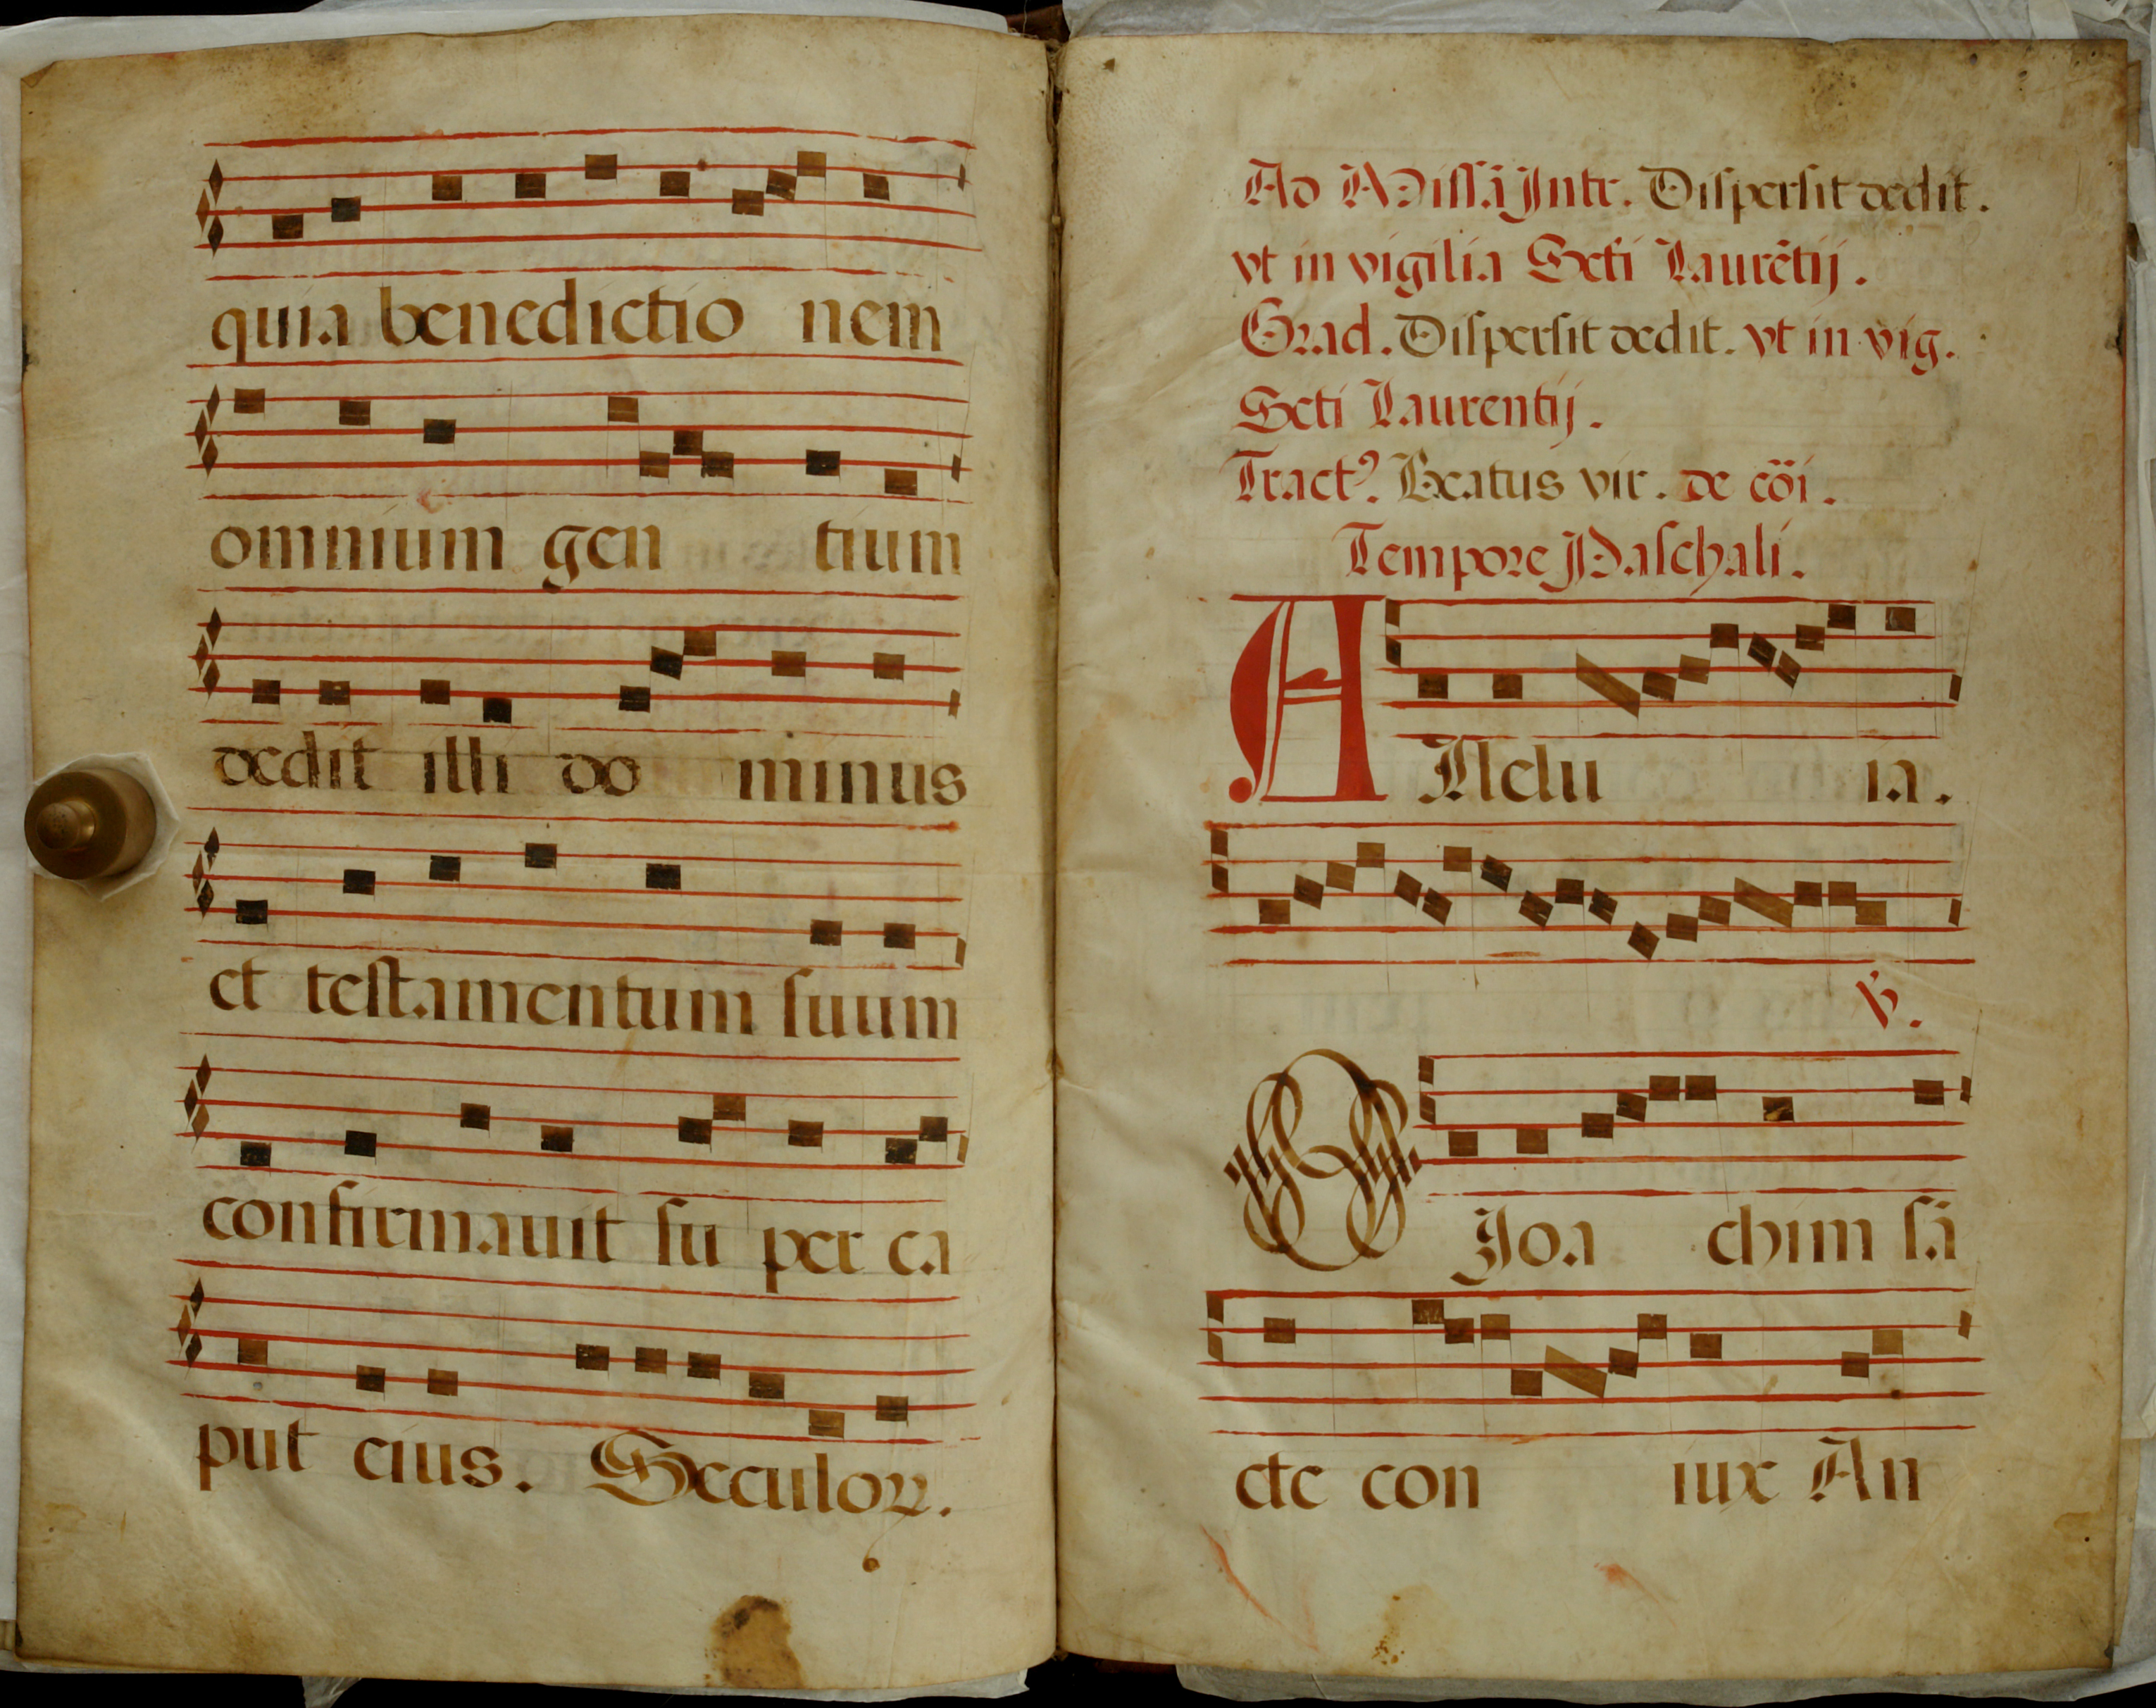 quia benedictio nem
omnium gen tium
dedit illi do minus
et testamentum ſuum
confirmauit ſu per ca
put eius. Seculoꝝ.
Ad Miſſā Intr. Diſperſit dedit.
vt in vigilia Scti Laurētij.
Grad. Diſperſit dedit. vt in vig.
Scti Laurentij.
Tractꝰ. Beatus vir. de cōi.
Tempore Paſchali.
ALlelu ia.
℣.
O Ioa chim ſā
cte con iux An